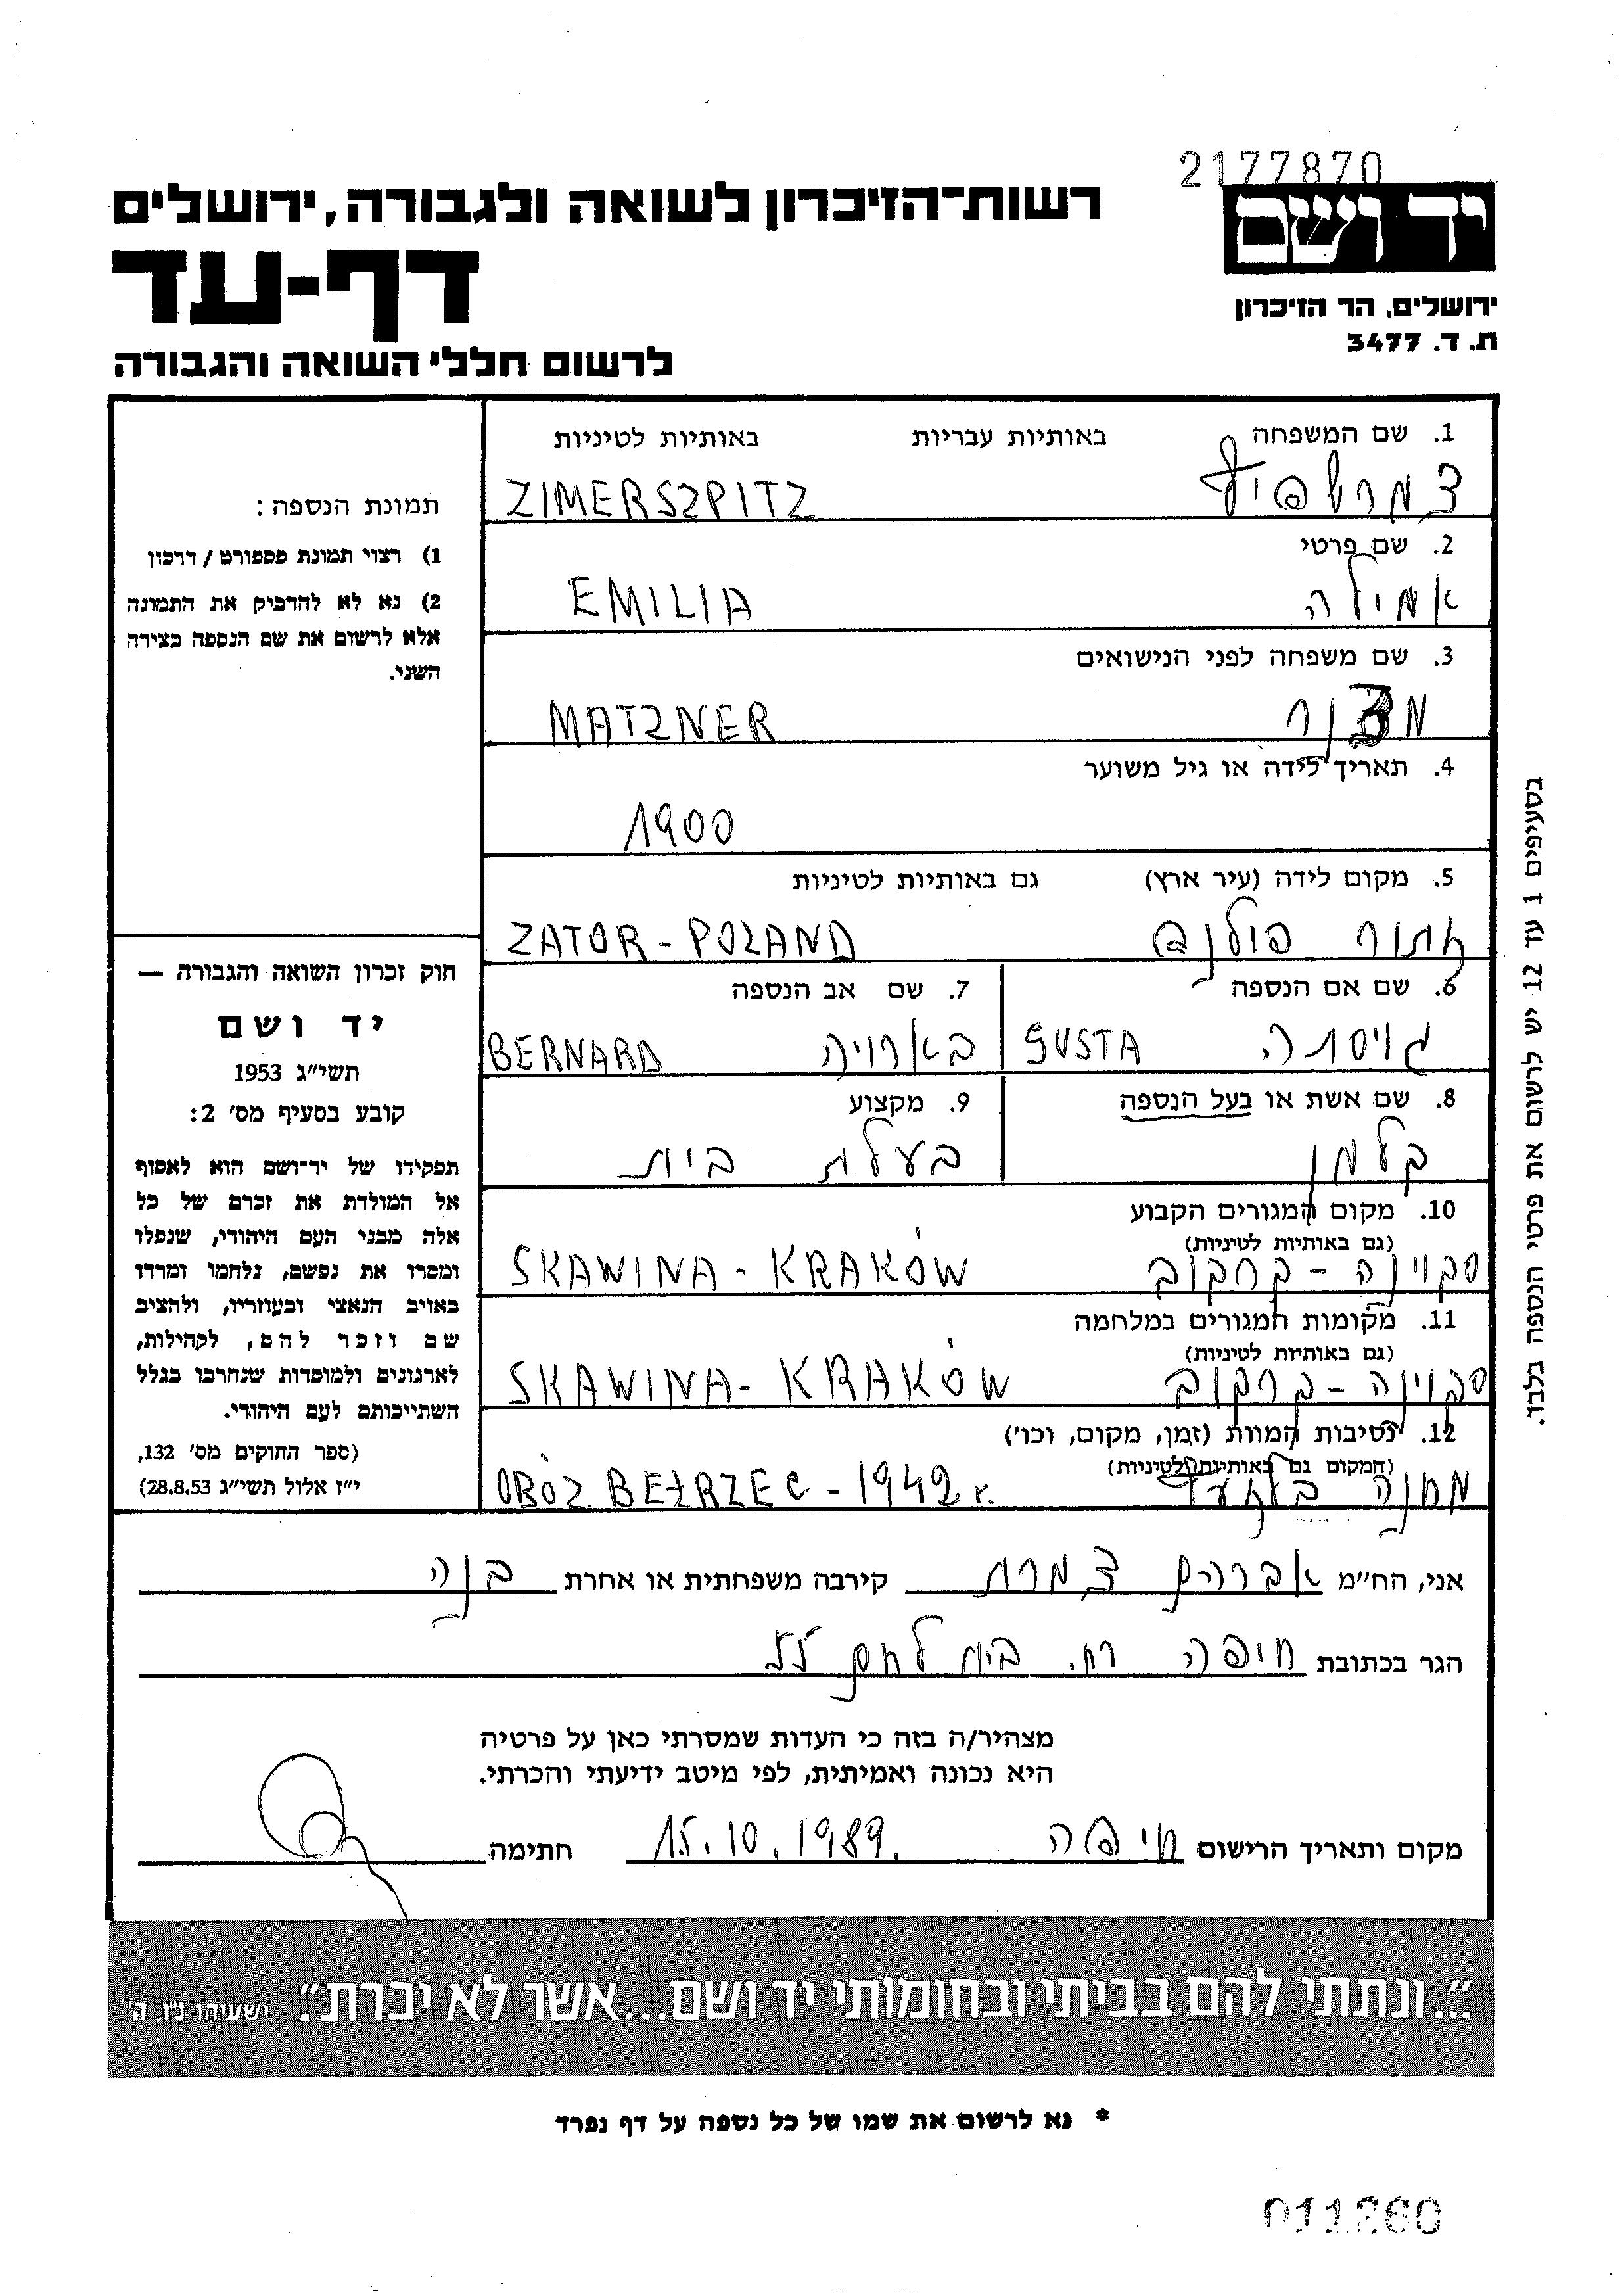 2177870
רשות־הזיכרון לשואה ולגבורה, ירושלים
יד ושם
דף-עד
ירושלים, הר הזיכרון
ת. ד. 3477
לרשום חללי השואה והגבורה
1. שם המשפחה באותיות עבריות באותיות לטיניות
צמרשפיץ ZIMERSZPITZ
2. שם פרטי
אמילה EMILIA
3. שם משפחה לפני הנישואים
מצנר MATZNER
4. תאריך לידה או גיל משוער
1900
5. מקום לידה (עיר ארץ) גם באותיות לטיניות
פולנ ZATOR - POLAND
6. שם אם הנספה
גוסתה GUSTA
7. שם אב הנספה
BERNARD
8. שם אשת או בעל הנספה
קלמן
9. מקצוע
בעלת בית
10. מקום המגורים הקבוע
(גם באותיות לטיניות)
סקוינה - קרקוב SKAWINA - KRAKÓW
11. מקומות המגורים במלחמה
(גם באותיות לטיניות)
סקוינה - קרקוב SKAWINA - KRAKÓW
12. נסיבות המוות (זמן, מקום, וכו')
(המקום גם באותיות לטיניות)
מחנה OBÓZ BEŁRZEC - 1942 r.
תמונת הנספה:
1) רצוי תמונת פספורט / דרכון
2) נא לא להדביק את התמונה
אלא לרשום את שם הנספה בצידה
השני.
חוק זכרון השואה והגבורה —
יד ושם
תשי״ג 1953
קובע בסעיף מס' 2:
תפקידו של יד־ושם הוא לאסוף
אל המולדת את זכרם של כל
אלה מבני העם היהודי, שנפלו
ומסרו את נפשם, נלחמו ומרדו
באויב הנאצי ובעוזריו, ולהציב
שם וזכר להם, לקהילות,
לארגונים ולמוסדות שנחרבו בגלל
השתייכותם לעם היהודי.
(ספר החוקים מס' 132,
י״ז אלול תשי״ג 28.8.53)
בסעיפים 1 עד 12 יש לרשום את פרטי הנספה בלבד.
אני, הח״מ אברהם צמרת קירבה משפחתית או אחרת בנה
הגר בכתובת חיפה רח. בית לחם 55
מצהיר/ה בזה כי העדות שמסרתי כאן על פרטיה
היא נכונה ואמיתית, לפי מיטב ידיעתי והכרתי.
מקום ותאריך הרישום חיפה 15.10.1989. חתימה
״...ונתתי להם בביתי ובחומותי יד ושם...אשר לא יכרת״. ישעיהו נ״ו, ה'
* נא לרשום את שמו של כל נספה על דף נפרד
011260